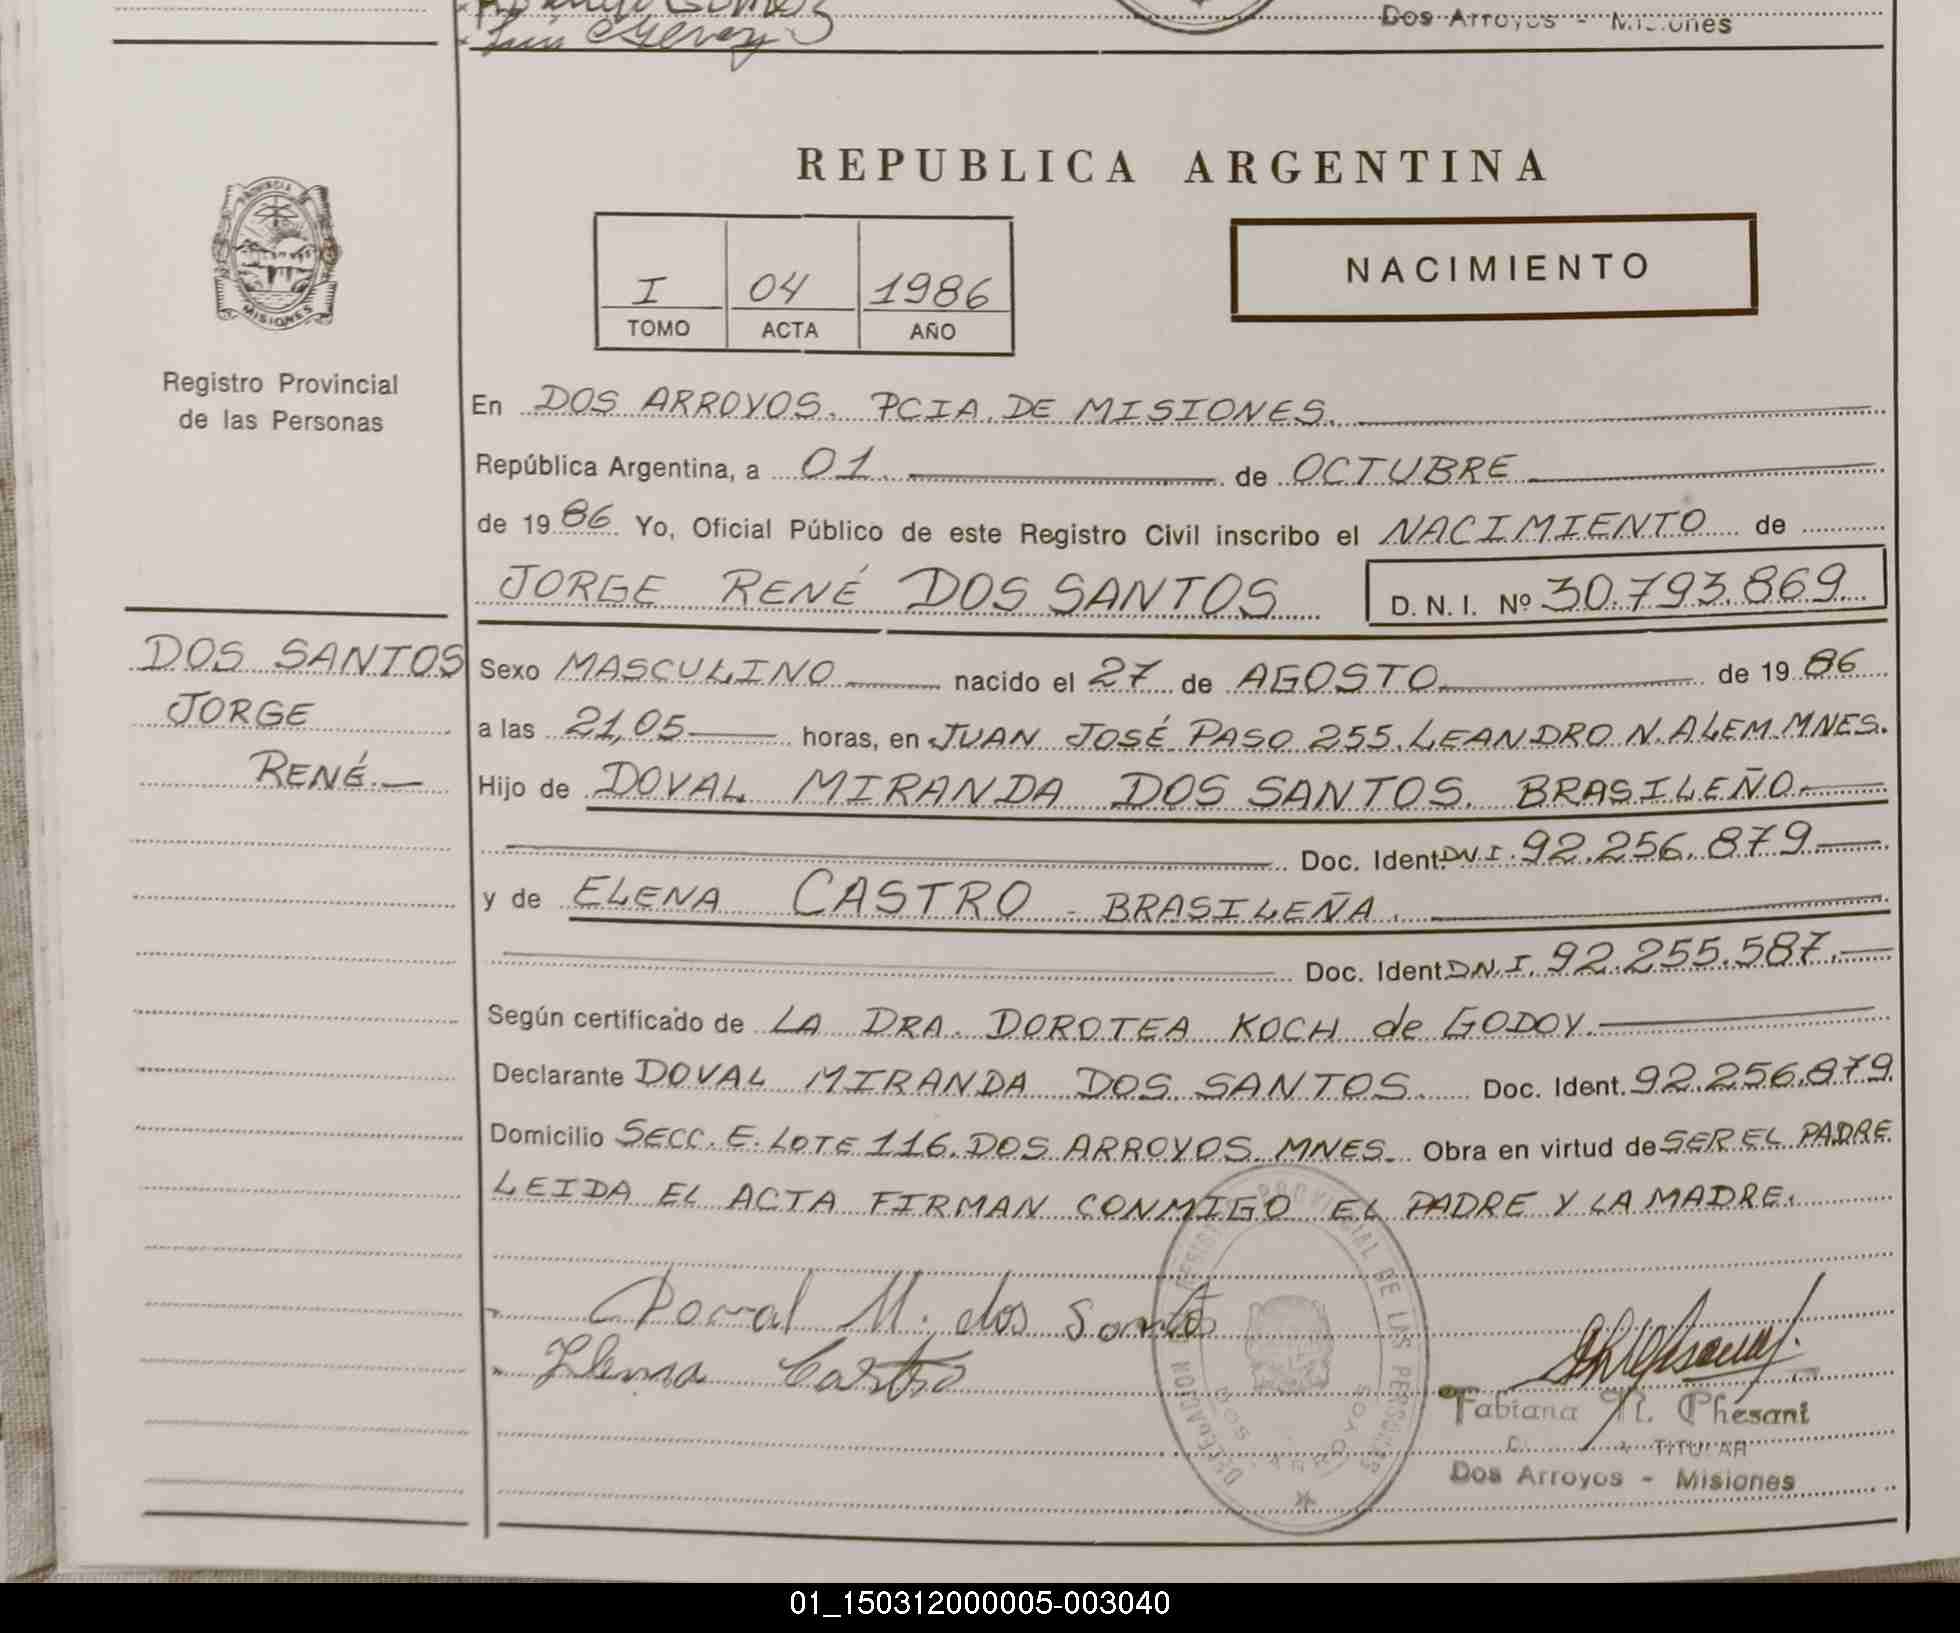 Dos Arroyos - Misiones
REPUBLICA ARGENTINA
PROVINCIA DE
MISIONES
Registro Provincial
de las Personas
I 04 1986
TOMO ACTA AÑO
NACIMIENTO
En DOS ARROYOS. PCIA. DE MISIONES.
República Argentina, a 01. de OCTUBRE
de 1986 Yo, Oficial Público de este Registro Civil inscribo el NACIMIENTO de
JORGE RENÉ DOS SANTOS D. N. I. Nº 30.793.869.
DOS SANTOS
JORGE
RENÉ.
Sexo MASCULINO nacido el 27 de AGOSTO de 1986
a las 21,05 horas, en JUAN JOSÉ PASO 255. LEANDRO N. ALEM. MNES.
Hijo de DOVAL MIRANDA DOS SANTOS. BRASILEÑO.
Doc. Ident. DNI. 92.256.879
y de ELENA CASTRO - BRASILEÑA.
Doc. Ident. D.N.I. 92.255.587.
Según certificado de LA DRA. DOROTEA KOCH de GODOY.
Declarante DOVAL MIRANDA DOS SANTOS. Doc. Ident. 92.256.879
Domicilio SECC. E. LOTE 116. DOS ARROYOS. MNES. Obra en virtud de SER EL PADRE
LEIDA EL ACTA FIRMAN CONMIGO EL PADRE Y LA MADRE.
Doval M. dos Santos
Elena Castro
DELEGACION REGISTRO PROVINCIAL DE LAS PERSONAS
DOS ARROYOS
Fabiana N. Chesani
TITULAR
Dos Arroyos - Misiones
01_150312000005-003040